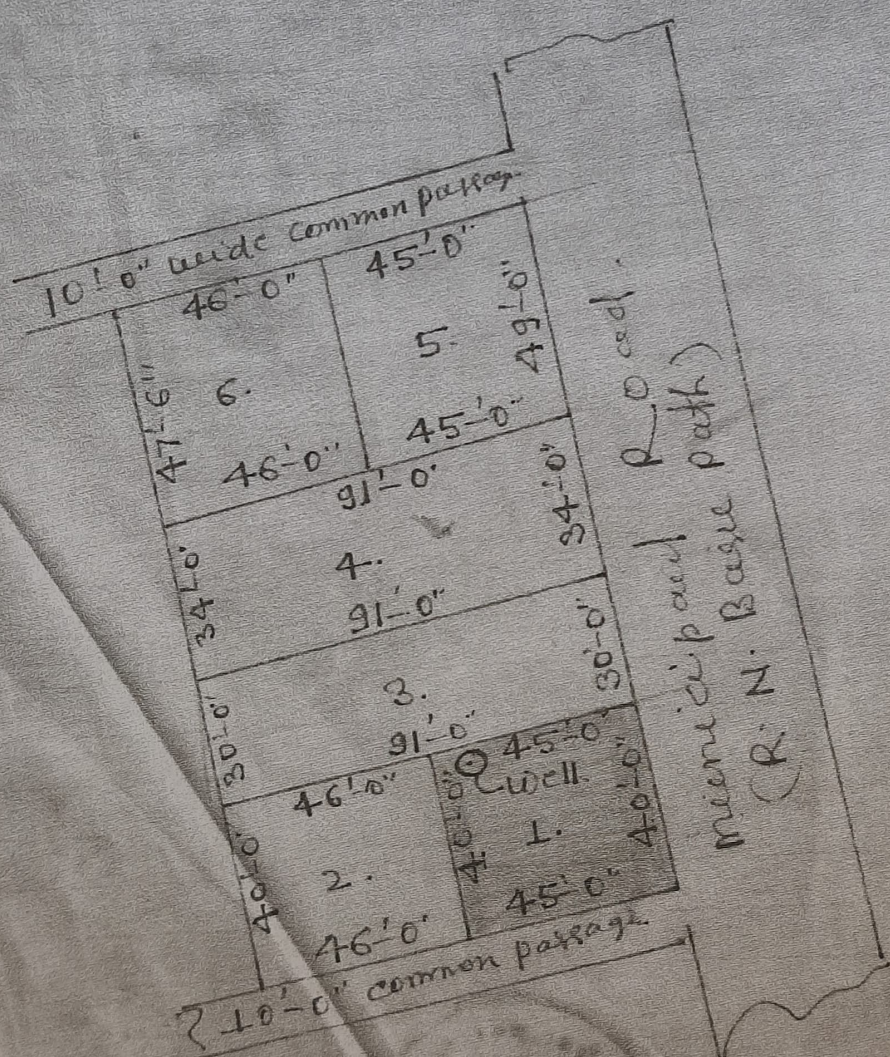 10'-0" wide common passage
46'-0"
45'-0"
47'-6"
6.
5.
49'-0"
46'-0"
45'-0"
91'-0"
34'-0"
4.
34'-0"
91'-0"
30'-0"
3.
30'-0"
91'-0"
46'-0"
45'-0"
well.
40'-0"
2.
40'-0"
1.
40'-0"
46'-0"
45'-0"
10'-0" common passage
municipal Road.
(R. N. Path)